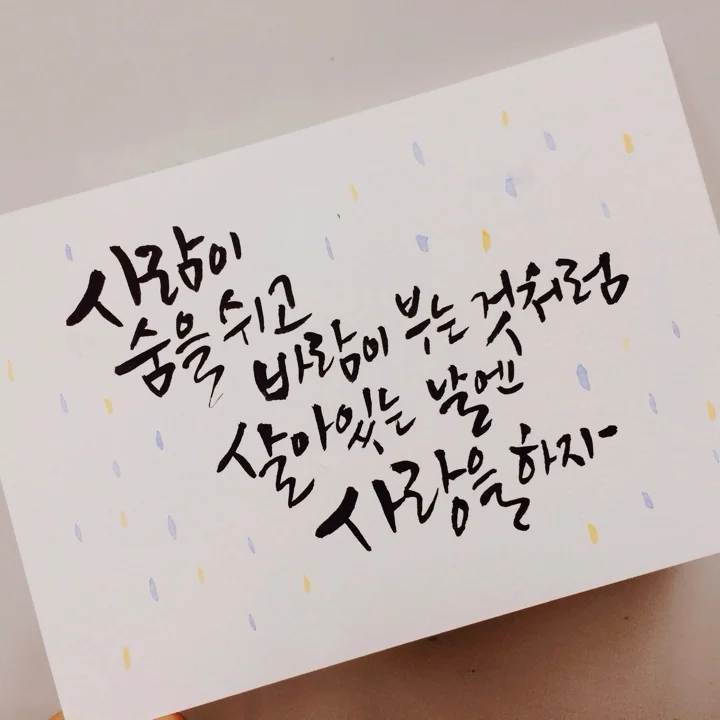 사람이
숨을 쉬고
바람이 부는 것처럼
살아있는 날엔
사랑을 하자